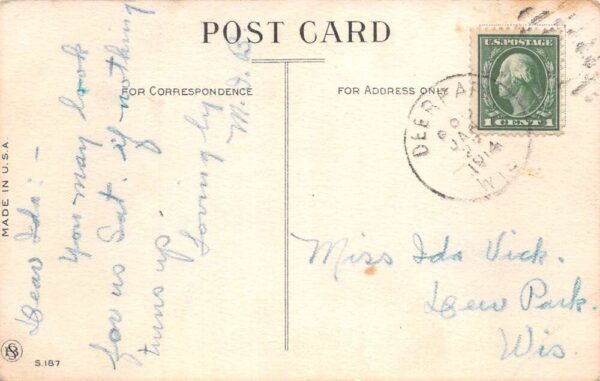 POST CARD
FOR CORRESPONDENCE
FOR ADDRESS ONLY
Dear Ida:-
You may look
for us Sat. if nothing
turns up.
Lovingly
M. J. B.
U.S. POSTAGE
1 CENT 1
DEER PARK
1914
WIS
Miss Ida Vick.
Deer Park.
Wis.
MADE IN U.S.A.
S.187